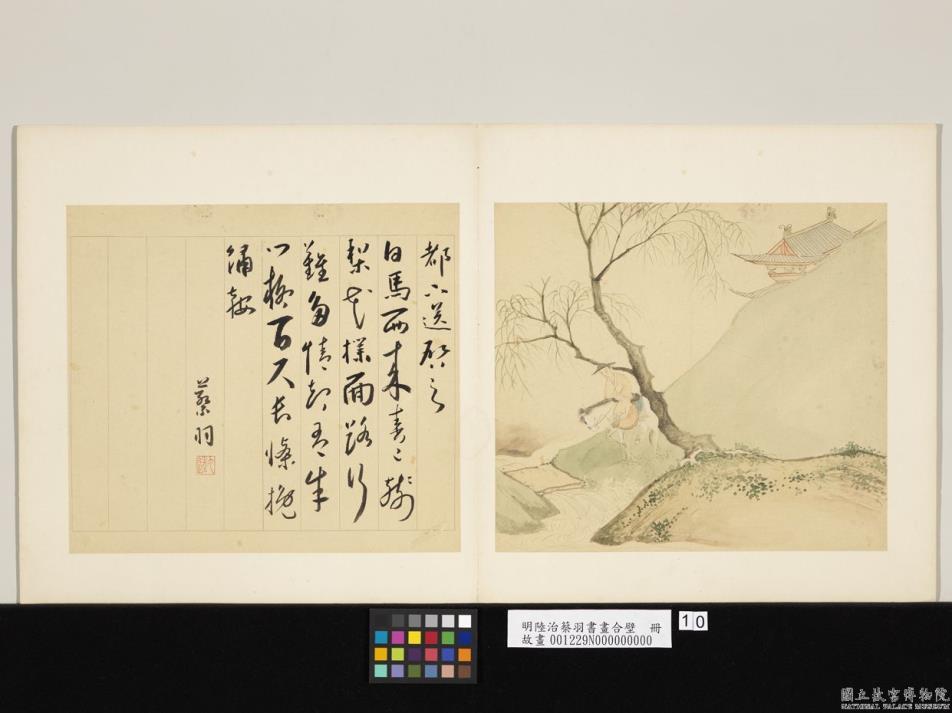 都下送啟之
白馬西來春已殘
梨花撲面路行
難多情却
門柳百尺長條挽
繡鞍
蔡羽
明陸治蔡羽書畫合璧 冊
故畫 001229N000000000
10
國立故宮博物院
NATIONAL PALACE MUSEUM